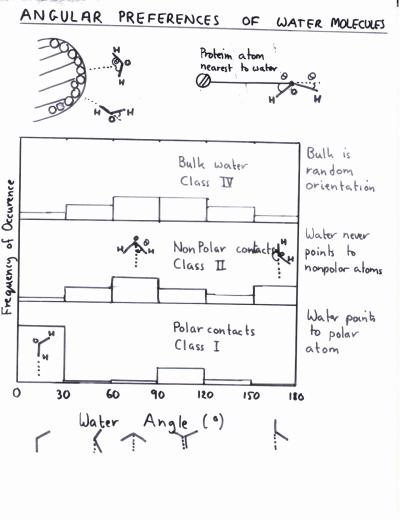 ANGULAR PREFERENCES OF WATER MOLECULES
H
θ
O
H
H O H
Protein atom
nearest to water
θ θ
H H
Frequency of Occurence
Bulk water
Class IV
Bulk is
random
orientation
O
H θ H
NonPolar contacts
Class II
H
H
Water never
points to
nonpolar atoms
Polar contacts
Class I
H
O
H
Water points
to polar
atom
0 30 60 90 120 150 180
Water Angle (°)